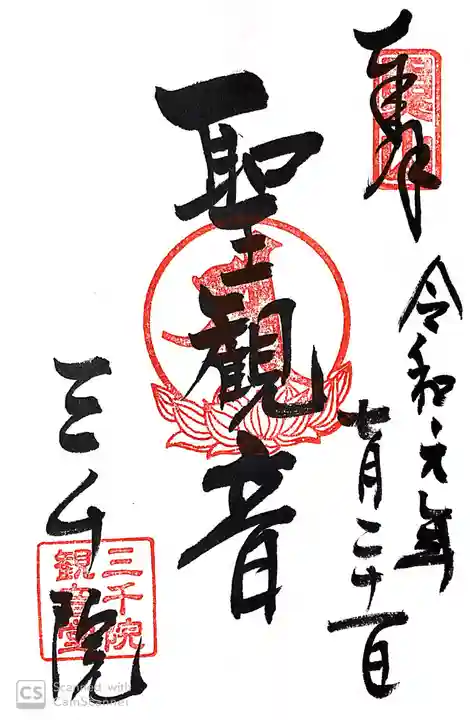 奉拝
令和元年
七月二十一日
聖観音
三千院
三千院
観音堂
CS Scanned with
CamScanner